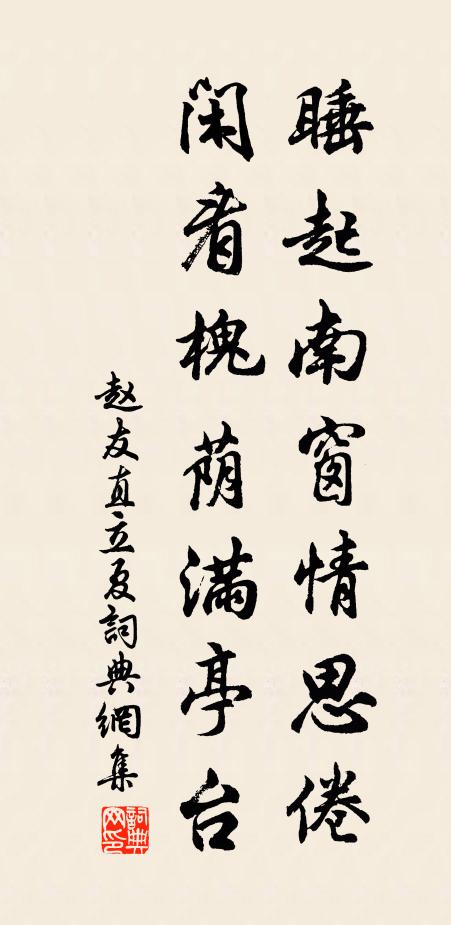 睡起南窗情思倦
闲看槐荫满亭台
赵友直立夏詞典網集
詞典网印